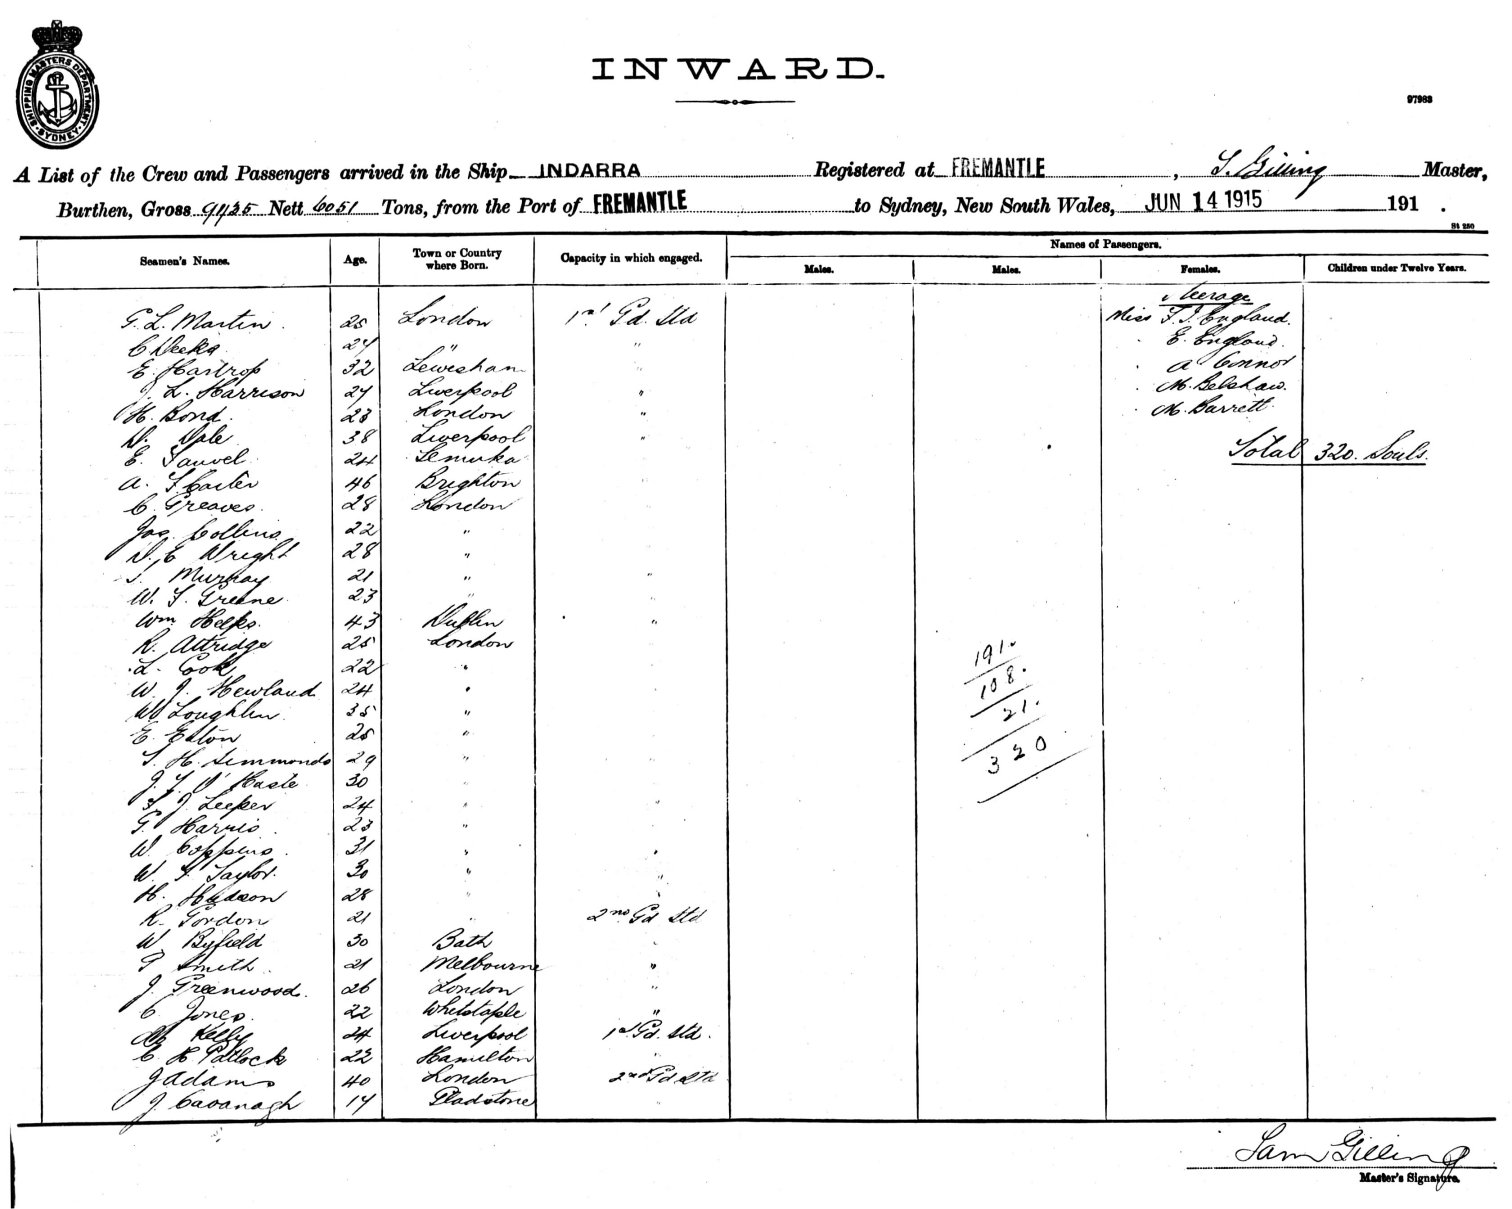 SHIPPING MASTERS DEPARTMENT
SYDNEY
INWARD.
97983
A List of the Crew and Passengers arrived in the Ship INDARRA Registered at FREMANTLE, S. Gilling Master,
Burthen, Gross 9735 Nett 6051 Tons, from the Port of FREMANTLE to Sydney, New South Wales, JUN 14 1915 191 .
St 250
Seamen's Names. Age. Town or Country where Born. Capacity in which engaged. Names of Passengers.
Males. Males. Females. Children under Twelve Years.
Steerage
G. L. Martin. 25 London 1st Gd. Std Miss F. J. England.
C Deeks 27 " " E. England.
E. Hartrop 32 Lewisham A Connor
J. L. Harrison 27 Liverpool " M. Belshaw.
H. Bond. 23 London " M. Barrett.
D. Dale 38 Liverpool "
E. Sauvel 24 Temuka Total 320. Souls.
A. F Carter 46 Brighton
C. Greaves. 28 London
Jas. Collins 22 "
D. E Wright 28 "
Murray 21 " "
W. F. Greene 23 "
Wm. Helps. 43 Dublin "
R. Attridge 25 London
L. Cook 22 "
W. J. Newland 24 "
W Loughlin. 35 "
E. Eaton 25 "
S. H. Simmonds 29 "
J. F. O'Haste 30 "
F J. Leeper 24 " "
G. Harris. 23 "
W. Coppins. 31 " "
W. F. Taylor. 30 " "
H. Hudson 28 "
R. Gordon 21 " 2nd Gd Std
W Byfield 30 Bath "
Smith. 21 Melbourne "
J. Greenwood. 26 London "
C Jones. 22 Whitstaple "
Kelly 24 Liverpool 1st Gd. Std.
C. H Patlock 22 Hamilton "
J Adams 40 London 2nd Gd Std
J. Cavanagh 17 Gladstone
191.
108.
21.
320
Sam Gilling
Master's Signature.